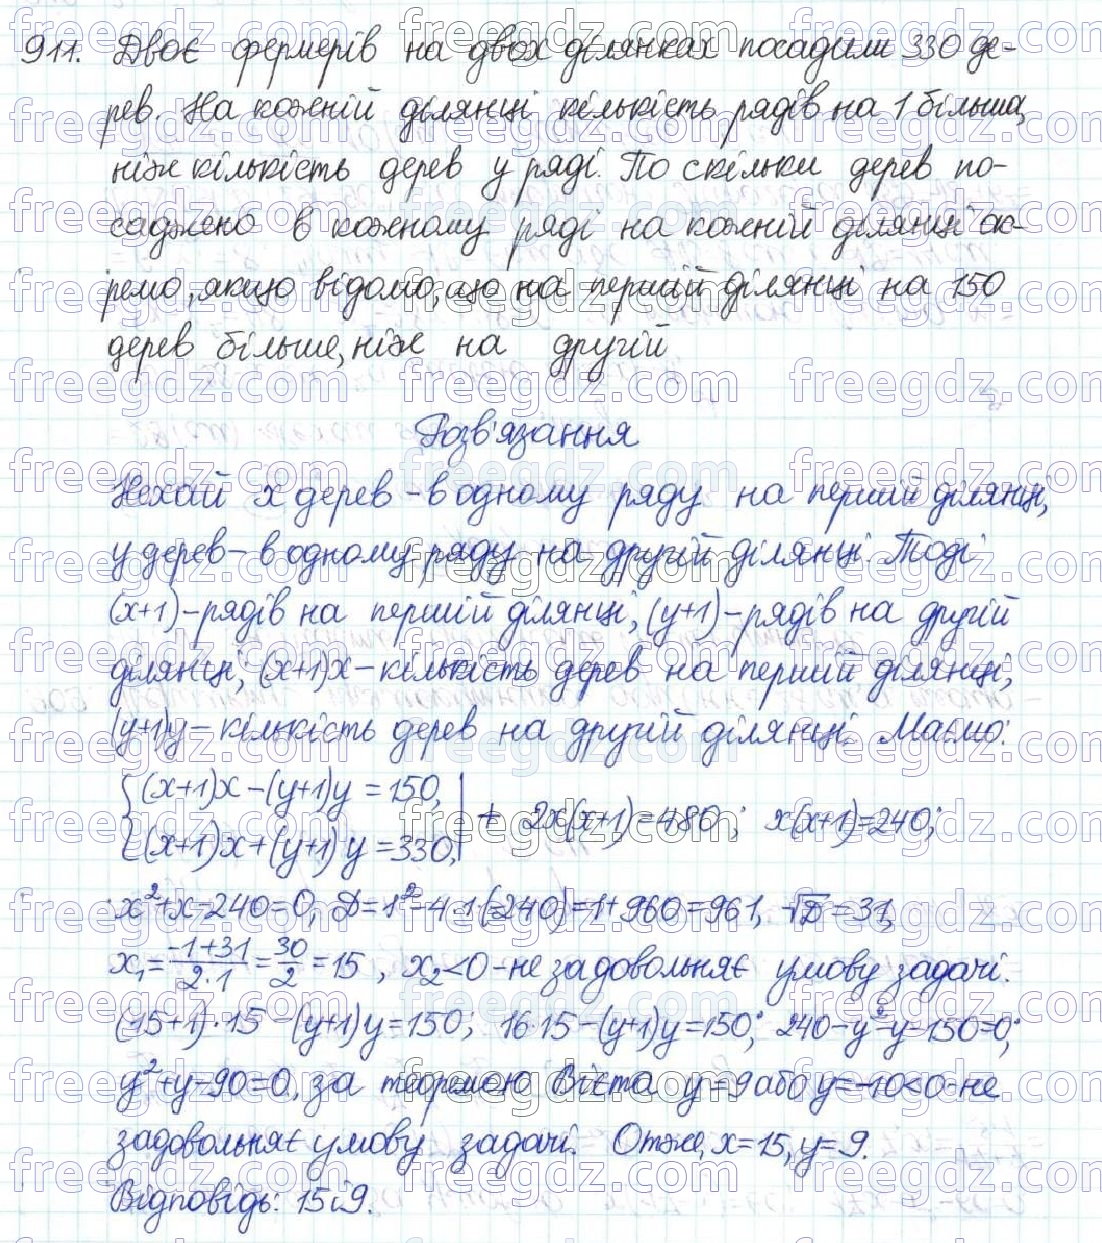 911. Двоє фермерів на двох ділянках посадили 330 де-
рев. На кожній ділянці кількість рядів на 1 більша,
ніж кількість дерев у ряді. По скільки дерев по-
саджено в кожному ряді на кожній ділянці ок-
ремо, якщо відомо, що на першій ділянці на 150
дерев більше, ніж на другій
Розв'язання
Нехай x дерев - в одному ряду на першій ділянці,
y дерев - в одному ряду на другій ділянці. Тоді
(x+1) - рядів на першій ділянці, (y+1) - рядів на другій
ділянці; (x+1)x - кількість дерев на першій ділянці,
(y+1)y - кількість дерев на другій ділянці. Маємо:
{(x+1)x-(y+1)y=150,
{(x+1)x+(y+1)y=330, | + 2x(x+1)=480; x(x+1)=240;
x²+x-240=0, D=1²-4·1(-240)=1+960=961, √D=31,
x₁=(-1+31)/(2·1)=30/2=15, x₂<0 - не задовольняє умову задачі.
(15+1)·15-(y+1)y=150; 16·15-(y+1)y=150; 240-y²-y=150=0;
y²+y-90=0, за теоремою Вієта y=9 або y=-10<0 - не
задовольняє умову задачі. Отже, x=15, y=9.
Відповідь: 15 і 9.
freegdz.com